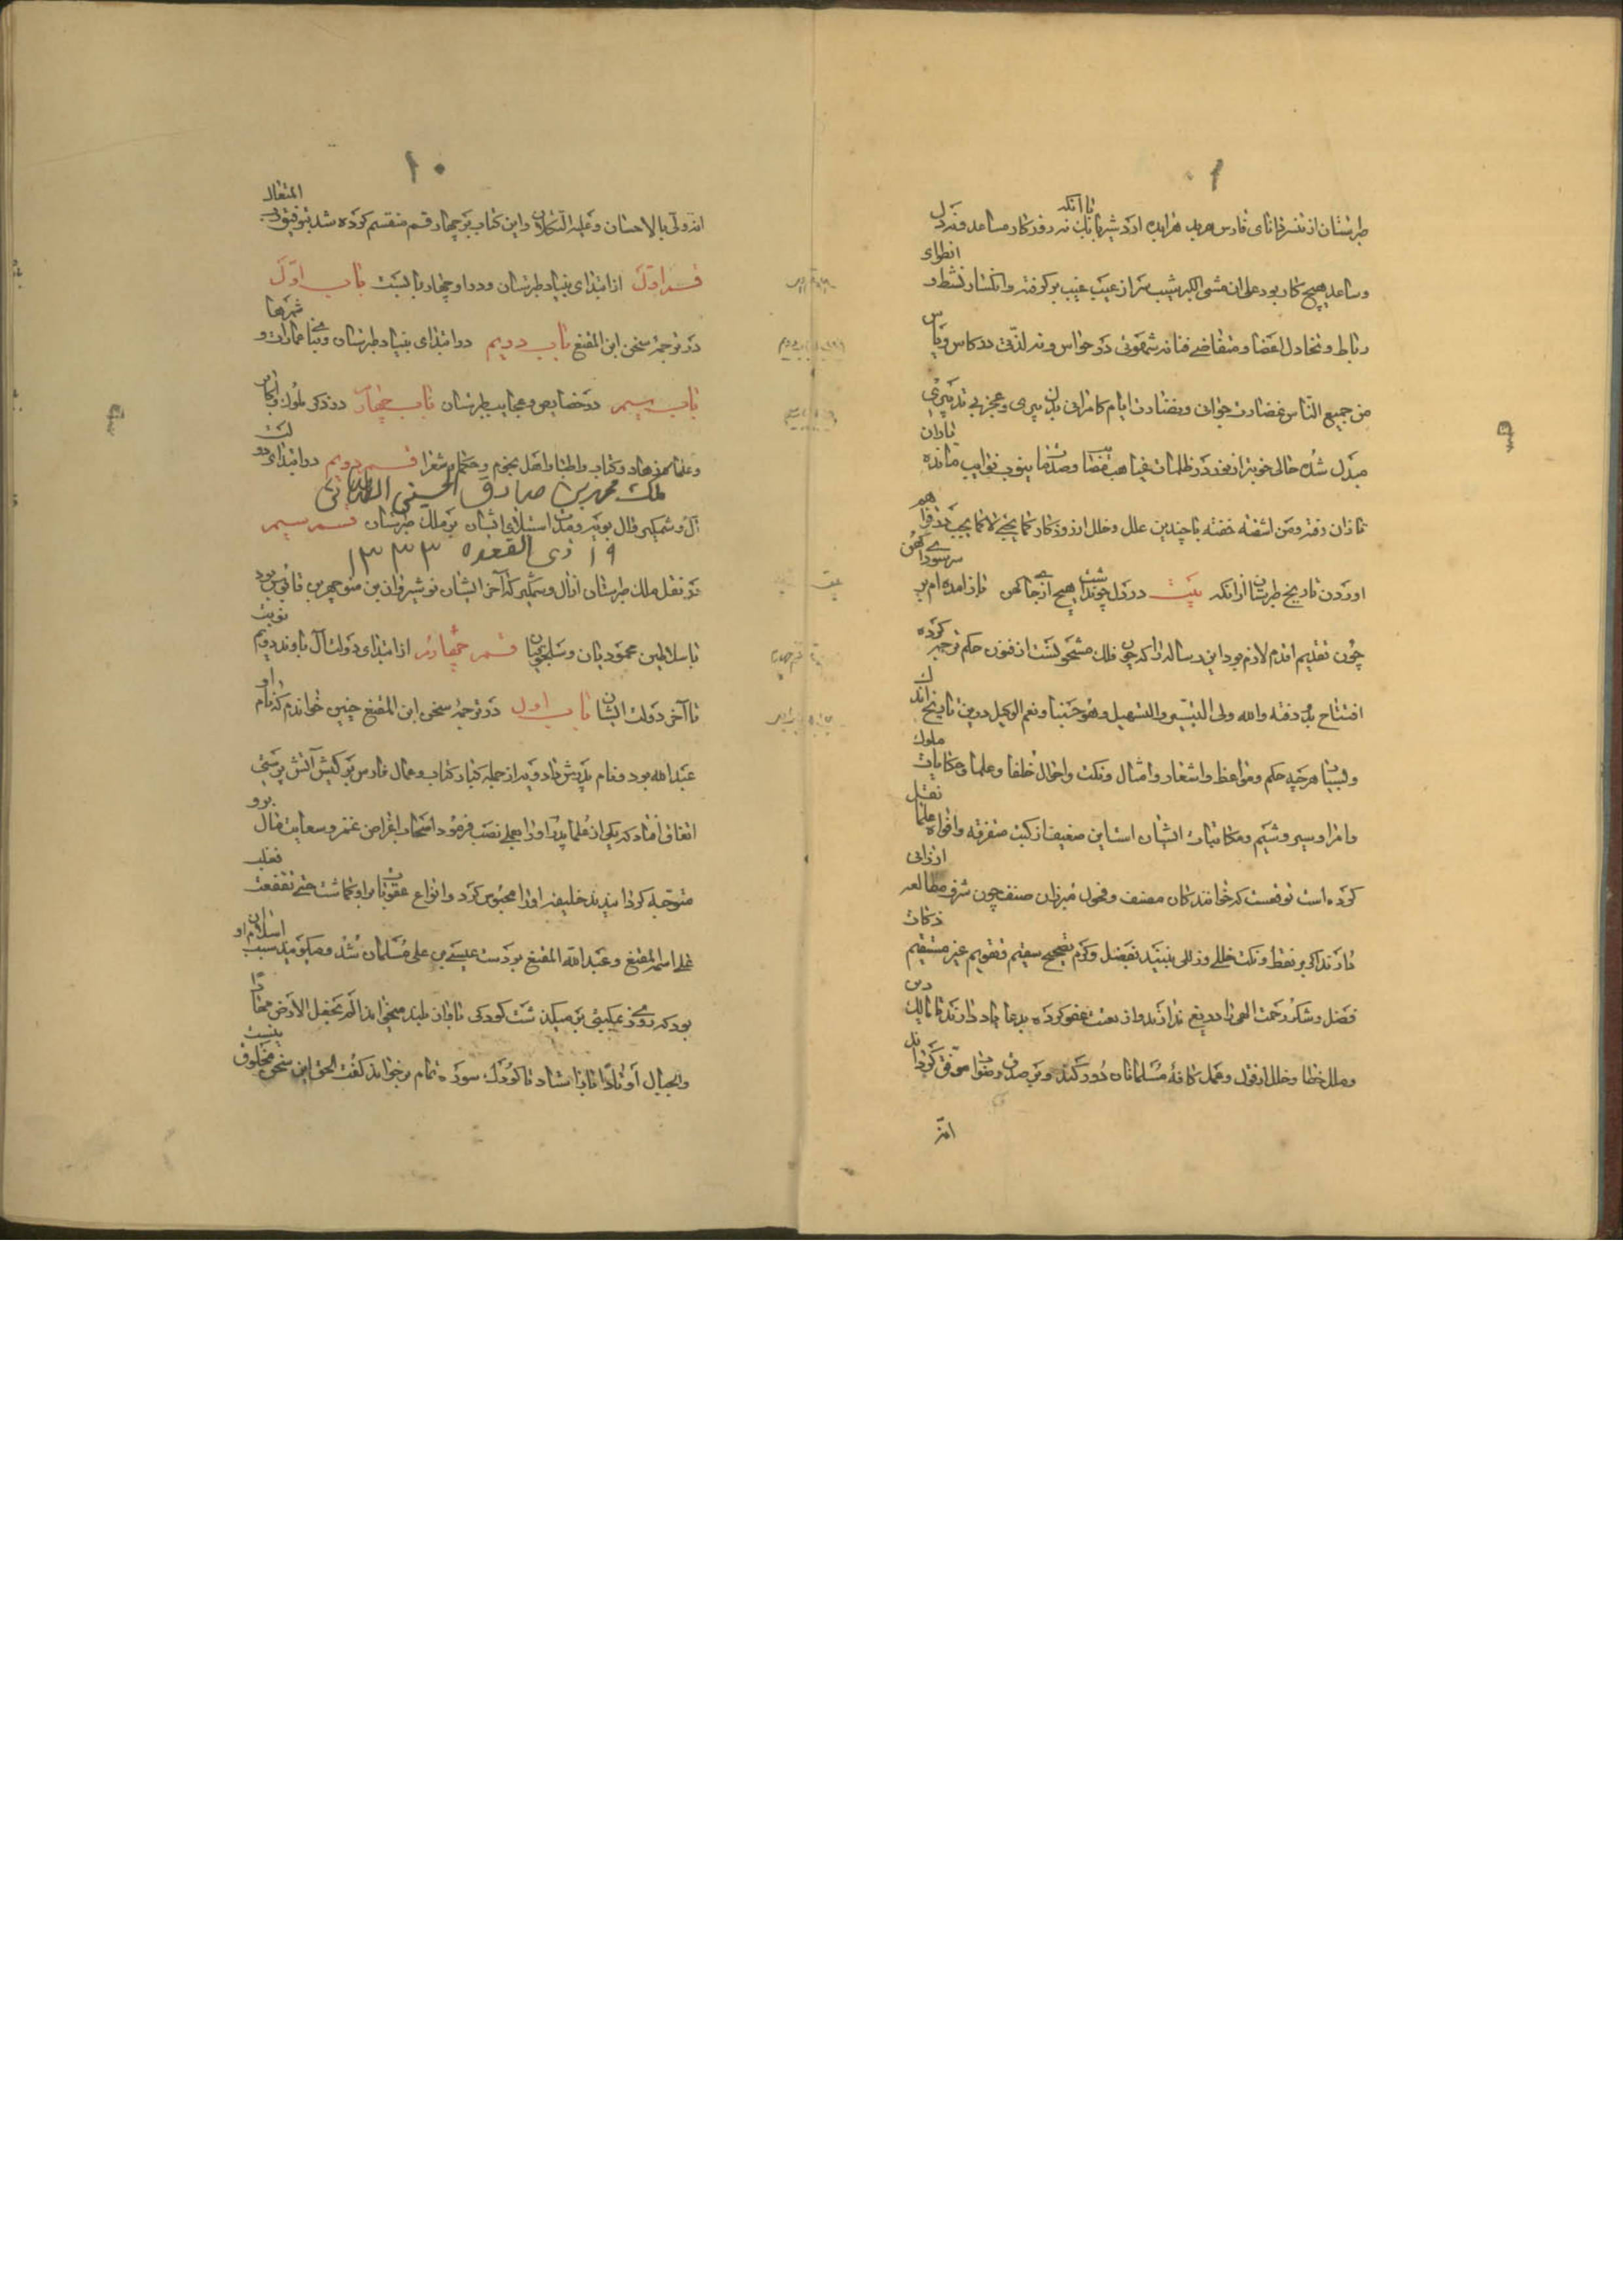 طبرستان از تنسر دانای فارس هربد هرابده اردشیر بابک با آنکه نه روزگار مساعد و نه دل
و ساعد بهیچ کار بود علی ان مشی الکبر شیب سر از عیب غیب برکرفته و انکسار نشط و انطوای
رباط و تخاذل اعضا و متقاضی فنا نه شهوتی در حواس و نه لذتی در کاس و یاس
من جمیع الناس غضارت جوانی و نضارت ایام کامرانی بدل بپیری و عجز بی تدبیری
مبدل شده حالی خوبتر از نفوذ در ظلمات غیاهب
تازان رفته و من اشفته خفته با چندین علل و خلل از روزکار کما یجی لا کما یجب
اوردن تاریخ طبرستان از انکه بیت در دل چو نداشت هیچ ازجا کهن تازامده ام بر سر سودای کهن
چون تقدیم اقدم لازم بود این رساله را که چون فلک مشحونست از فنون حکم ترجمه کرده
افتتاح بدو رفته والله ولی التیسیر والتسهیل وهو حسبنا ونعم الوکیل درین تاریخ اندک
و لیسیان هرچه حکم و مواعظ و اشعار و امثال و نکت و احوال خلفا و علما و حکایات ملوک
و امرا و سیر و شیم و مکاتبات ایشان است این ضعیف از کتب متفرقه و افواه علما نقل
کرده است توقعست که خوانندکان مصنف و فحول مبرزان صنف چون شرف مطالعه ارزانی
دارند اکر بر نقط و نکت خللی و زللی بینند بفضل و کرم تصحیح سقیم و تقویم غیر مستقیم
فضل و شکر رحمت الهی را دریغ ندارند و از بعث عفو کرده بدعا یاد دارند تا مالک
و ملل خطا و خلل از قول و عمل کافه مسلمانان دور کند و بر صدق و صواب موفق کرداند
انه
۱۰
انه ولی بالاحسان و علیه التکلان و این کتاب بر چهار قسم منقسم کرده شد بتوفیق المتعال
قسم اول از ابتدای بنیاد طبرستان و درا و چهار بابست باب اول
در ترجمه سخن ابن المقفع باب دویم در ابتدای بنیاد طبرستان و بنای عمارات و شهرها
باب سیم در خصایص و عجایب طبرستان باب چهارم در ذکر ملوک و اکابر
و علما و زهاد و کتاب و اطبا و اهل نجوم و حکما و شعرا قسم دویم در ابتدای دولت
ملک محمد بن صادق الحسینی الطباطبائی
آل وشمکیر و آل بویه و مدت استیلای ایشان بر ملک طبرستان قسم سیم
۱۹ ذی القعده ۱۳۳۳
در نقل ملک طبرستان از آل وشمکیر که آخر ایشان نوشیروان بن منوچهر بن قابوس بود
با سلاطین محمودیان و سلجوقیان قسم چهارم از ابتدای دولت آل باوند دویم نوبت
تا آخر دولت ایشان باب اول در ترجمه سخن ابن المقفع چنین خواندم که نام او
عبدالله بود و نام پدرش دادویه از جمله کبار کتاب و عمال فارس بر کیش آتش پرستی
اتفاق افتاد که یکی از خلفا پدر او را بعملی نصب فرمود اصحاب اغراض غمز و سعایت مال برو
متوجه کردانیدند خلیفه او را محبوس کرد و انواع عقوبات برو کماشت حتی تقفعت
فغلب علی اسمه المقفع و عبدالله المقفع بر دست عیسی بن علی مسلمان شد و میکویند سبب اسلام او
بود که روزی بمکتبی بر میکذشت کودکی باواز بلند میخواند الم نجعل الارض مهادا
والجبال اوتادا باز ایستاد تا کودک سوره تمام برخواند کفت الحق این سخن مخلوق نیست